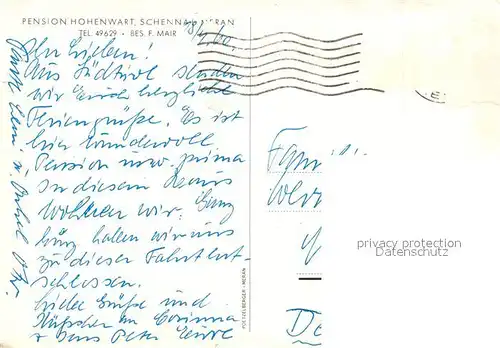 PENSION HOHENWART, SCHENNA / MERAN
TEL. 49629 · BES. F. MAIR
Ihr Lieben!
Aus Südtirol senden
wir Euch herzliche
Feriengrüße. Es ist
hier wundervoll
Pension usw. prima
In diesem Haus
wohnen wir. Ganz
haben wir uns
zu dieser Fahrt ent-
schlossen.
Liebe Grüße und
Küßchen an Corinna
Hans Peter Eure
Onkel
Fam
POETZELBERGER - MERAN
privacy protection
Datenschutz